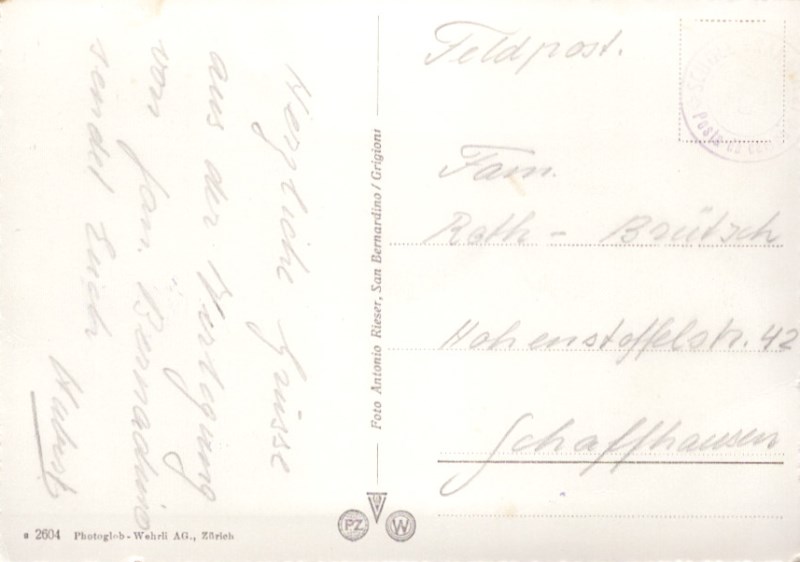 Herzliche Grüsse
aus der Verlegung
von San. Bernadino
sendet Euch
Hubert
Feldpost.
Fam.
Roth - Brütsch
Hohenstoffelstr. 42
Schaffhausen
Foto Antonio Rieser, San Bernardino / Grigioni
PZ W
2604 Photoglob-Wehrli AG., Zürich